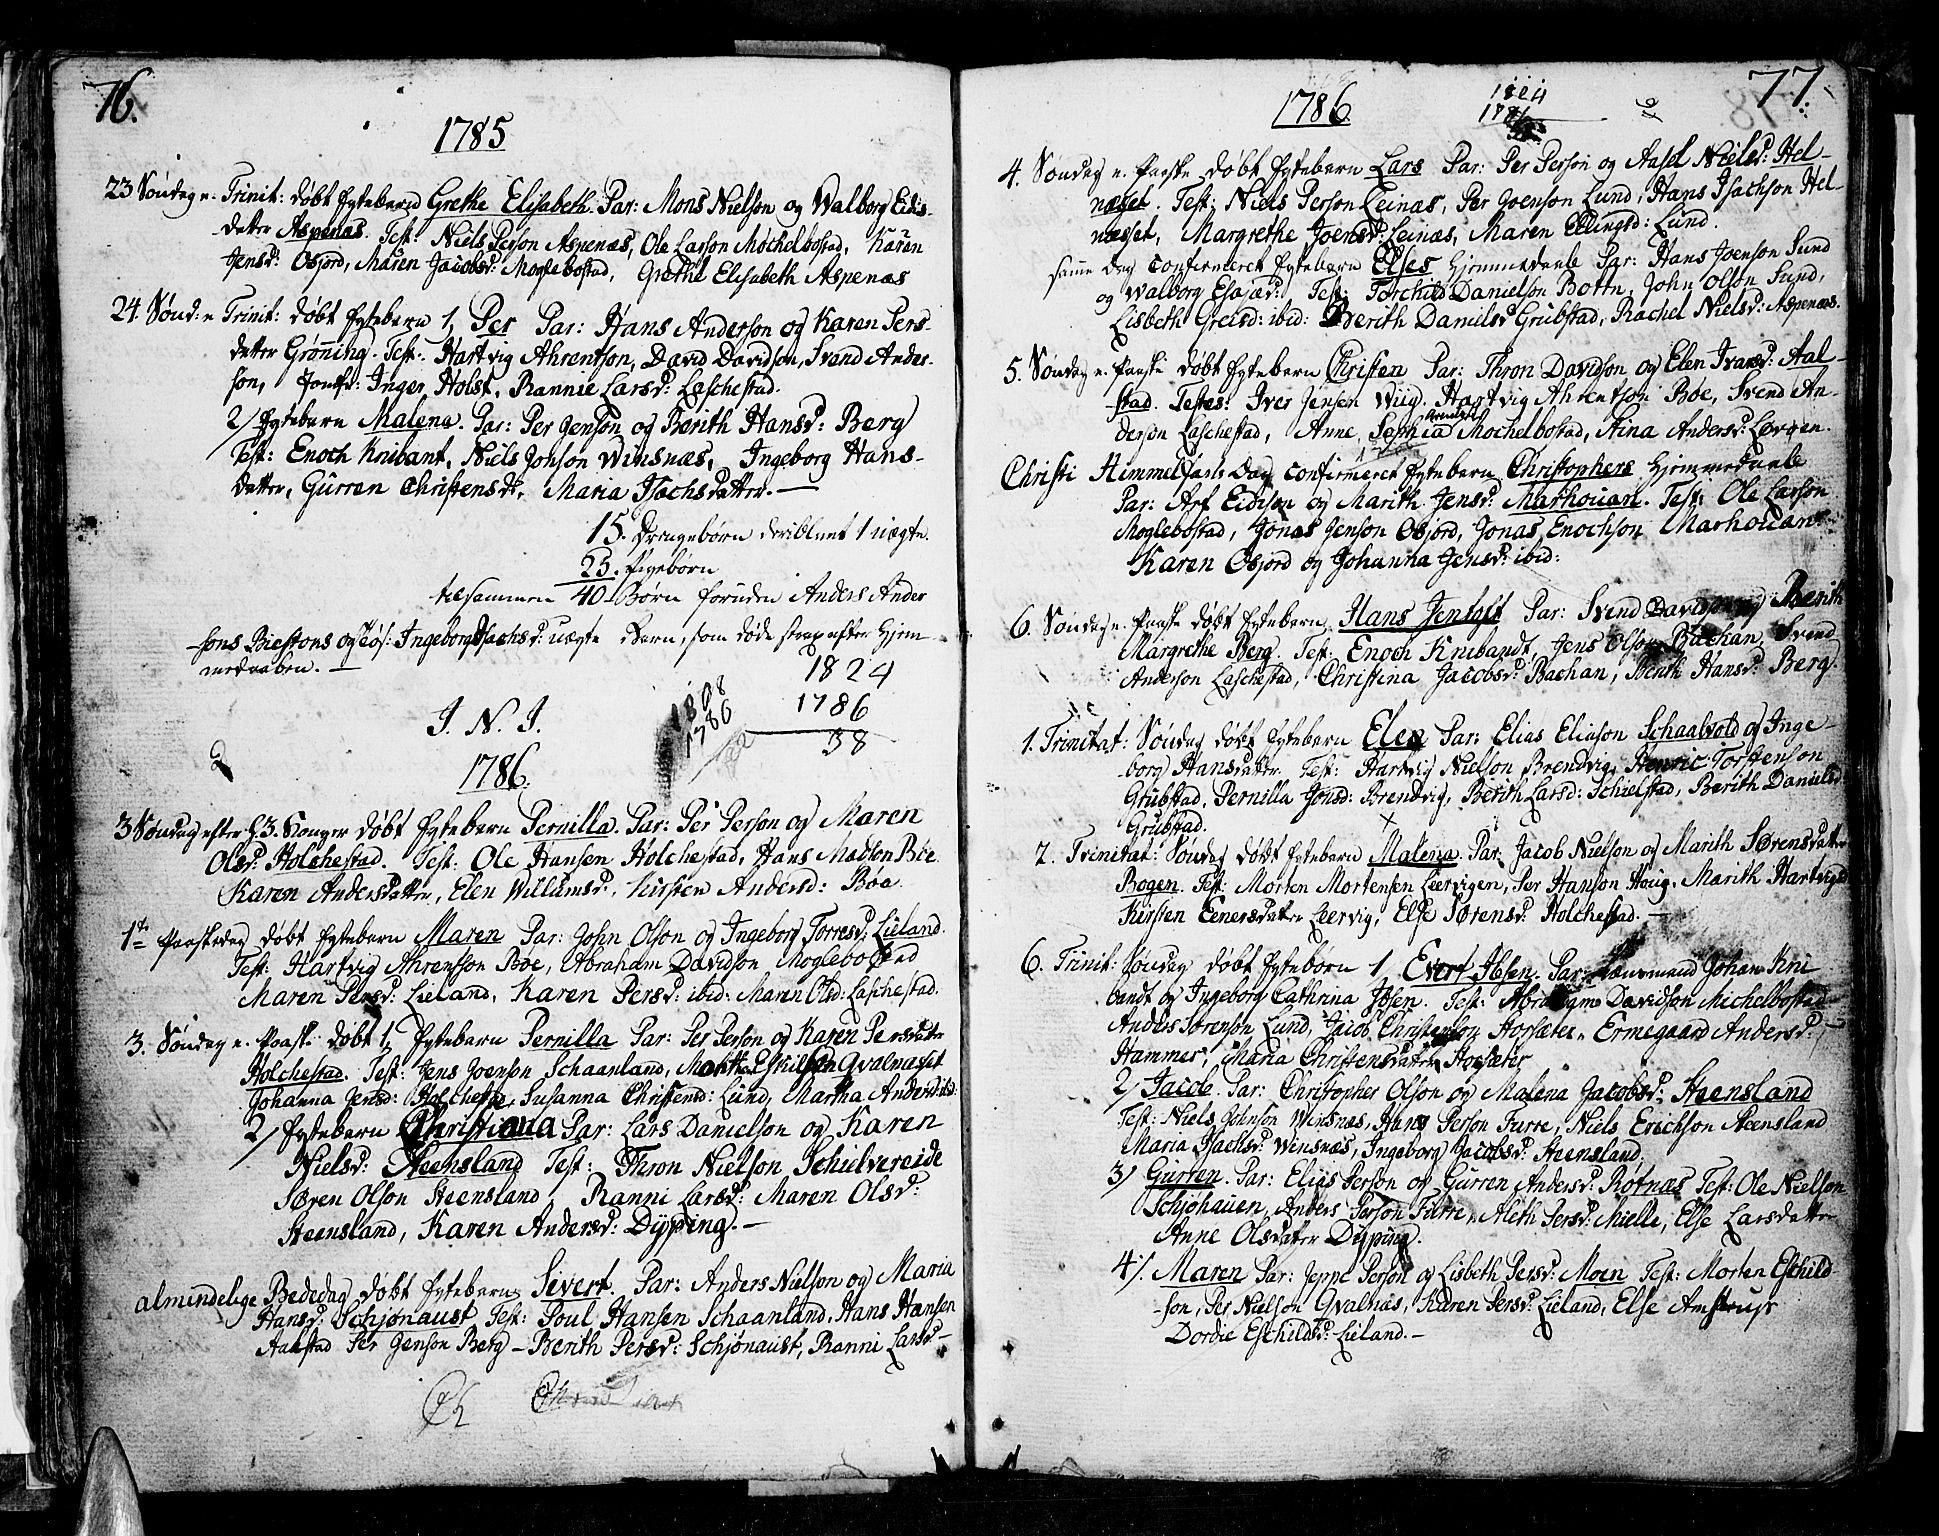 76.
1785
23 Søndag e. Trinit: døbt Ægtebarn Grethe Elisabeth. Par: Mons Nielson og Walborg Eidis-
datter Aspenæs. Test: Niels Person Aspenæs, Ole Larson Mochelbostad, Karen
Jensd: Osjord, Maren Jacobsd: Moglebostad, Grethe Elisabeth Aspenæs
24. Sønd: e Trinit: døbt Ægtebarn 1, Per Par: Hans Anderson og Karen Pers-
datter Grønning. Test: Hartvig Ahrentson, David Davidson, Svend Ander-
son, Inger Holst, Rannie Larsd: Laschestad.
2/ Ægtebarn Malena. Par: Per Jenson og Berith Hansd: Berg
Test: Enoch Knibant, Niels Jonson Winsnæs, Ingeborg Hans-
datter, Gurren Christensd:, Maria Isachsdatter. —
15. Drengebørn deriblant 1 uægte.
25. Pigebørn
tilsammen 40 Børn foruden Anders Ander
sons Biestons og Løs: Ingeborg Isachsd: uægte Barn, som døde strax efter Hjem-
medaaben. —
1824
1786
38
1808
1786
J. N. J.
1786.
3 Søndag efter H. 3. Konger døbt Ægtebarn Pernilla. Par: Per Person og Maren
Olsd: Holchestad. Test: Ole Hansen Holchestad, Hans Madson Bøe
Karen Andersdatter, Elen Willumsd:, Kirsten Andersd: Bøe.
1ste Paaskedag døbt Ægtebarn Maren Par: John Olson og Ingeborg Torresd: Lieland.
Test: Hartvig Ahrenson Bøe, Abraham Davidson Moglebostad
Maren Persd: Lieland, Karen Persd: ibid: Maren Olsd: Laschestad.
3. Søndag e. Paaske døbt 1, Ægtebarn Pernilla Par: Per Person og Karen Persdatter
Holchestad. Test: Jens Joenson Schaanland, Eskilson Qvalnæset
Johanna Jensd: Holchestad, Susanna Christensd: Lund, Martha Andersd: ibid:
2/ Ægtebarn Christiana Par: Lars Danielson og Karen
Nielsd: Steensland Test: Thron Nielson Schielvereide
Søren Olson Steensland, Ranni Larsd: Maren Olsd:
Steensland, Karen Andersd: Dypping. —
almindelige Bededag døbt Ægtebarn Sivert. Par: Anders Nielson og Maria
Hansd: Schjønaust Test: Poul Hansen Schaanland, Hans Hansen
Aalstad Per Jenson Berg — Berith Persd: Schjønaust, Ranni Larsd —
77
1786
1824
1786
4. Søndag e. Paaske døbt Ægtebarn Lars Par: Per Person og Aasel Nielsd: Hel-
næset. Test: Niels Person Leinæs, Per Joenson Lund, Hans Isachson Hel-
næsset, Margrethe Joensd: Leinæs, Maren Ellingsd: Lund.
samme Dag confirmeret Ægtebarn Elses Hjemmedaab Par: Hans Joenson Sund
og Walborg Esajæd: Test: Torchild Danielson Botn, John Olson Sund,
Lisbeth Greisd: ibid: Berith Danielsd Grubstad, Rachel Nielsd: Aspenæs.
5. Søndag e. Paaske døbt Ægtebarn Christen Par: Thron Davidson og Elen Ivarsd: Aal-
stad. Testes: Iver Jensen Wiig, Hartvig Ahrentson Bøe, Svend An-
derson Laschestad, Anne Sophia Mochelbostad, Stina Andersd: Løvøen.
Christi Himmelfarts Dag confirmeret Ægtebarn Christophers Hjemmedaab
Par: Arf Eidison og Marith Jensd: Marhouan. Test: Ole Larson
Moglebostad, Jonas Jenson Osjord, Jonas Enochson Marhouan
Karen Osjord og Johanna Jensd: ibid:
6. Søndag e. Paaske døbt Ægtebarn Hans Jentoft Par: Svend Davidson og Berith
Margrethe Berg. Test: Enoch Knibandt, Jens Olson Bachan, Svend
Anderson Laschestad, Christina Jacobsd: Bachan, Berith Hansd: Berg.
1. Trinitat: Søndag døbt Ægtebarn Elen Par: Elias Eliason Schaalvold og Inge-
borg Hansdatter Test: Hartvig Nielson Brendvig, Henric Torstenson
Grubstad, Pernilla Jonsd: Brendvig, Berith Larsd: Schielstad, Berith Danielsd
Grubstad.
2. Trinitat: Søndag døbt Ægtebarn Malena. Par: Jacob Nielson og Marith Sørensdatter
Bogen. Test: Morten Mortensen Leervigen, Per Hanson Houg, Marith Hartvigsd
Kirsten Eenersdatter Leervig, Else Sørensd: Holchestad. —
6. Trinit: Søndag døbt Ægtebørn 1, Evert Ibsen. Par: Lænsmand Johan Kni
bandt og Ingeborg Cathrina Ibsen. Test: Abraham Davidson Michelbostad
Anders Sørenson Lund, Jacob Christenson Horsæter, Ermegaard Andersd:
Hammer, Maria Christensdatter Horsæter
2/ Jacob. Par: Christopher Olson og Malena Jacobsd: Steensland
Test: Niels Johnson Winsnæs, Hans Person Furre, Niels Erichson Steensland
Maria Isachsd: Winsnæs, Ingeborg Jacobsd: Steensland.
3/ Gurren. Par: Elias Person og Gurren Andersd: Røtnæs Test: Ole Nielson
Schjøhauen, Anders Person Furre, Aleth Persd: Mielle, Else Larsdatter
Anne Olsdatter Dypping.
4/. Maren Par: Jeppe Person og Lisbeth Persd: Moen Test: Morten Eschild-
son, Per Nielson Qvalnæs, Karen Persd: Lieland, Else Amstrup
Dordie Eschildsd: Lieland. —